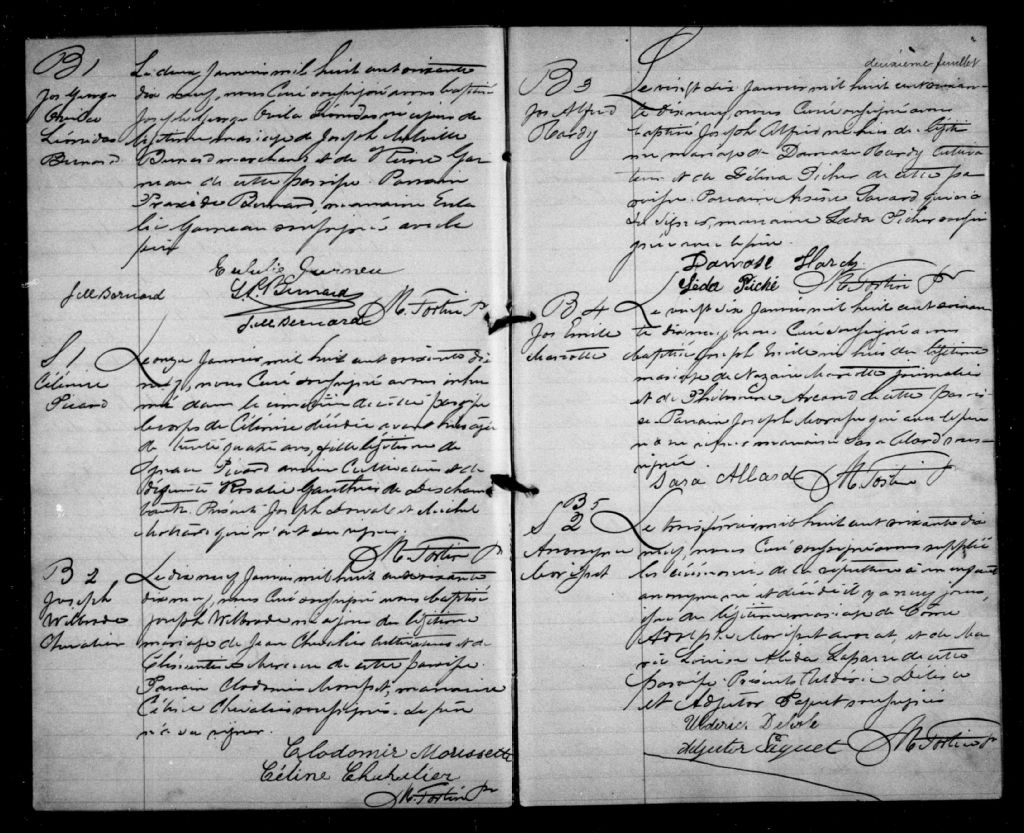 B 1
Jos George
Ovila
Léonidas
Bernard
Le deux Janvier mil huit cent soixante
dix neuf, nous Curé soussigné avons baptisé
Joseph George Ovila Léonidas né ce jour du
légitime mariage de Joseph
Bernard marchand et de Gar
neau de cette paroisse. Parrain
Praxède Bernard, marraine Eula
lie Garneau soussignés avec le
père
Eulalie Garneau
P. Bernard
J ell Bernard
J ell Bernard
N. Fortin Ptr
S 1
Célénire
Picard
Le onze Janvier mil huit cent soixante dix
neuf, nous Curé soussigné avons inhu
mé dans le cimetière de cette paroisse
le corps de Célénire décédée avant hier âgée
de trente quatre ans, fille légitime de
Ignace Picard ancien Cultivateur et de
défunte Rosalie Gauthier de Descham
bault. Présents Joseph et Michel
qui n'ont su signer.
N. Fortin Ptr
B 2
Joseph
Wilbrode
Chevalier
Le dix neuf Janvier mil huit cent soixante
dix neuf, nous Curé soussigné avons baptisé
Joseph Wilbrode né ce jour du légitime
mariage de Jean Chevalier cultivateur et de
de cette paroisse.
Parrain Clodomir Morisset, marraine
Céline Chevalier soussignés. Le père
n'a su signer.
Clodomir Morissette
Céline Chevalier
N. Fortin Ptr
deuxième feuillet
B 3
Jos Alfred
Hardy
Le vingt dix Janvier mil huit cent soixan
te dix neuf, nous Curé soussigné avons
baptisé Joseph Alfred né hier du légiti
me mariage de Damase Hardy Cultiva
teur et de Délina Picher de cette pa
roisse. Parrain Arsène qui n'a
su signer, marraine Léda Picher soussi
gnée avec le père.
Damase Hardy
Léda Piché
N. Fortin Ptr
B 4
Jos Emile
Marcotte
Le vingt dix Janvier mil huit cent soixan
te dix neuf, nous Curé soussigné avons
baptisé Joseph Emile né hier du légitime
mariage de Nazaire Marcotte journalier
et de Philomène Arcand de cette parois
se. Parrain Joseph qui avec le père
n'a su signer marraine Sara Alard sous-
signée.
Sara Allard
N. Fortin Ptr
B 5
S 2
Anonyme
Morisset
Le trois février mil huit cent soixante dix
neuf, nous Curé soussigné avons suppléé
les cérémonies de la sépulture à un enfant
anonyme né et décédé il y a neuf jours,
issu du légitime mariage de Côme
Adolphe Morisset avocat, et de Ma
rie Louise Alida Laparre de cette
paroisse. Présents Uldéric Delisle
et Adjutor Paquet soussignés
Uldéric Delisle
Adjutor Paquet
N. Fortin Ptr